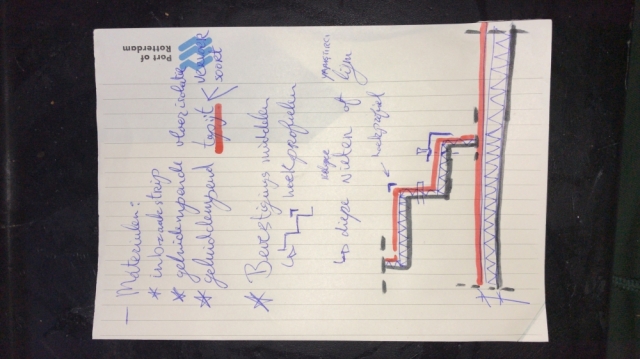 Port of
Rotterdam
- Materialen:
* inbraakstrip
* geluidempende vloerisolatie
* geluiddempend tapijt < vlak
soort
* Bevestigings middelen
↳ hoekprofielen
↳ diepe nieten of lijm
← hoekprofiel